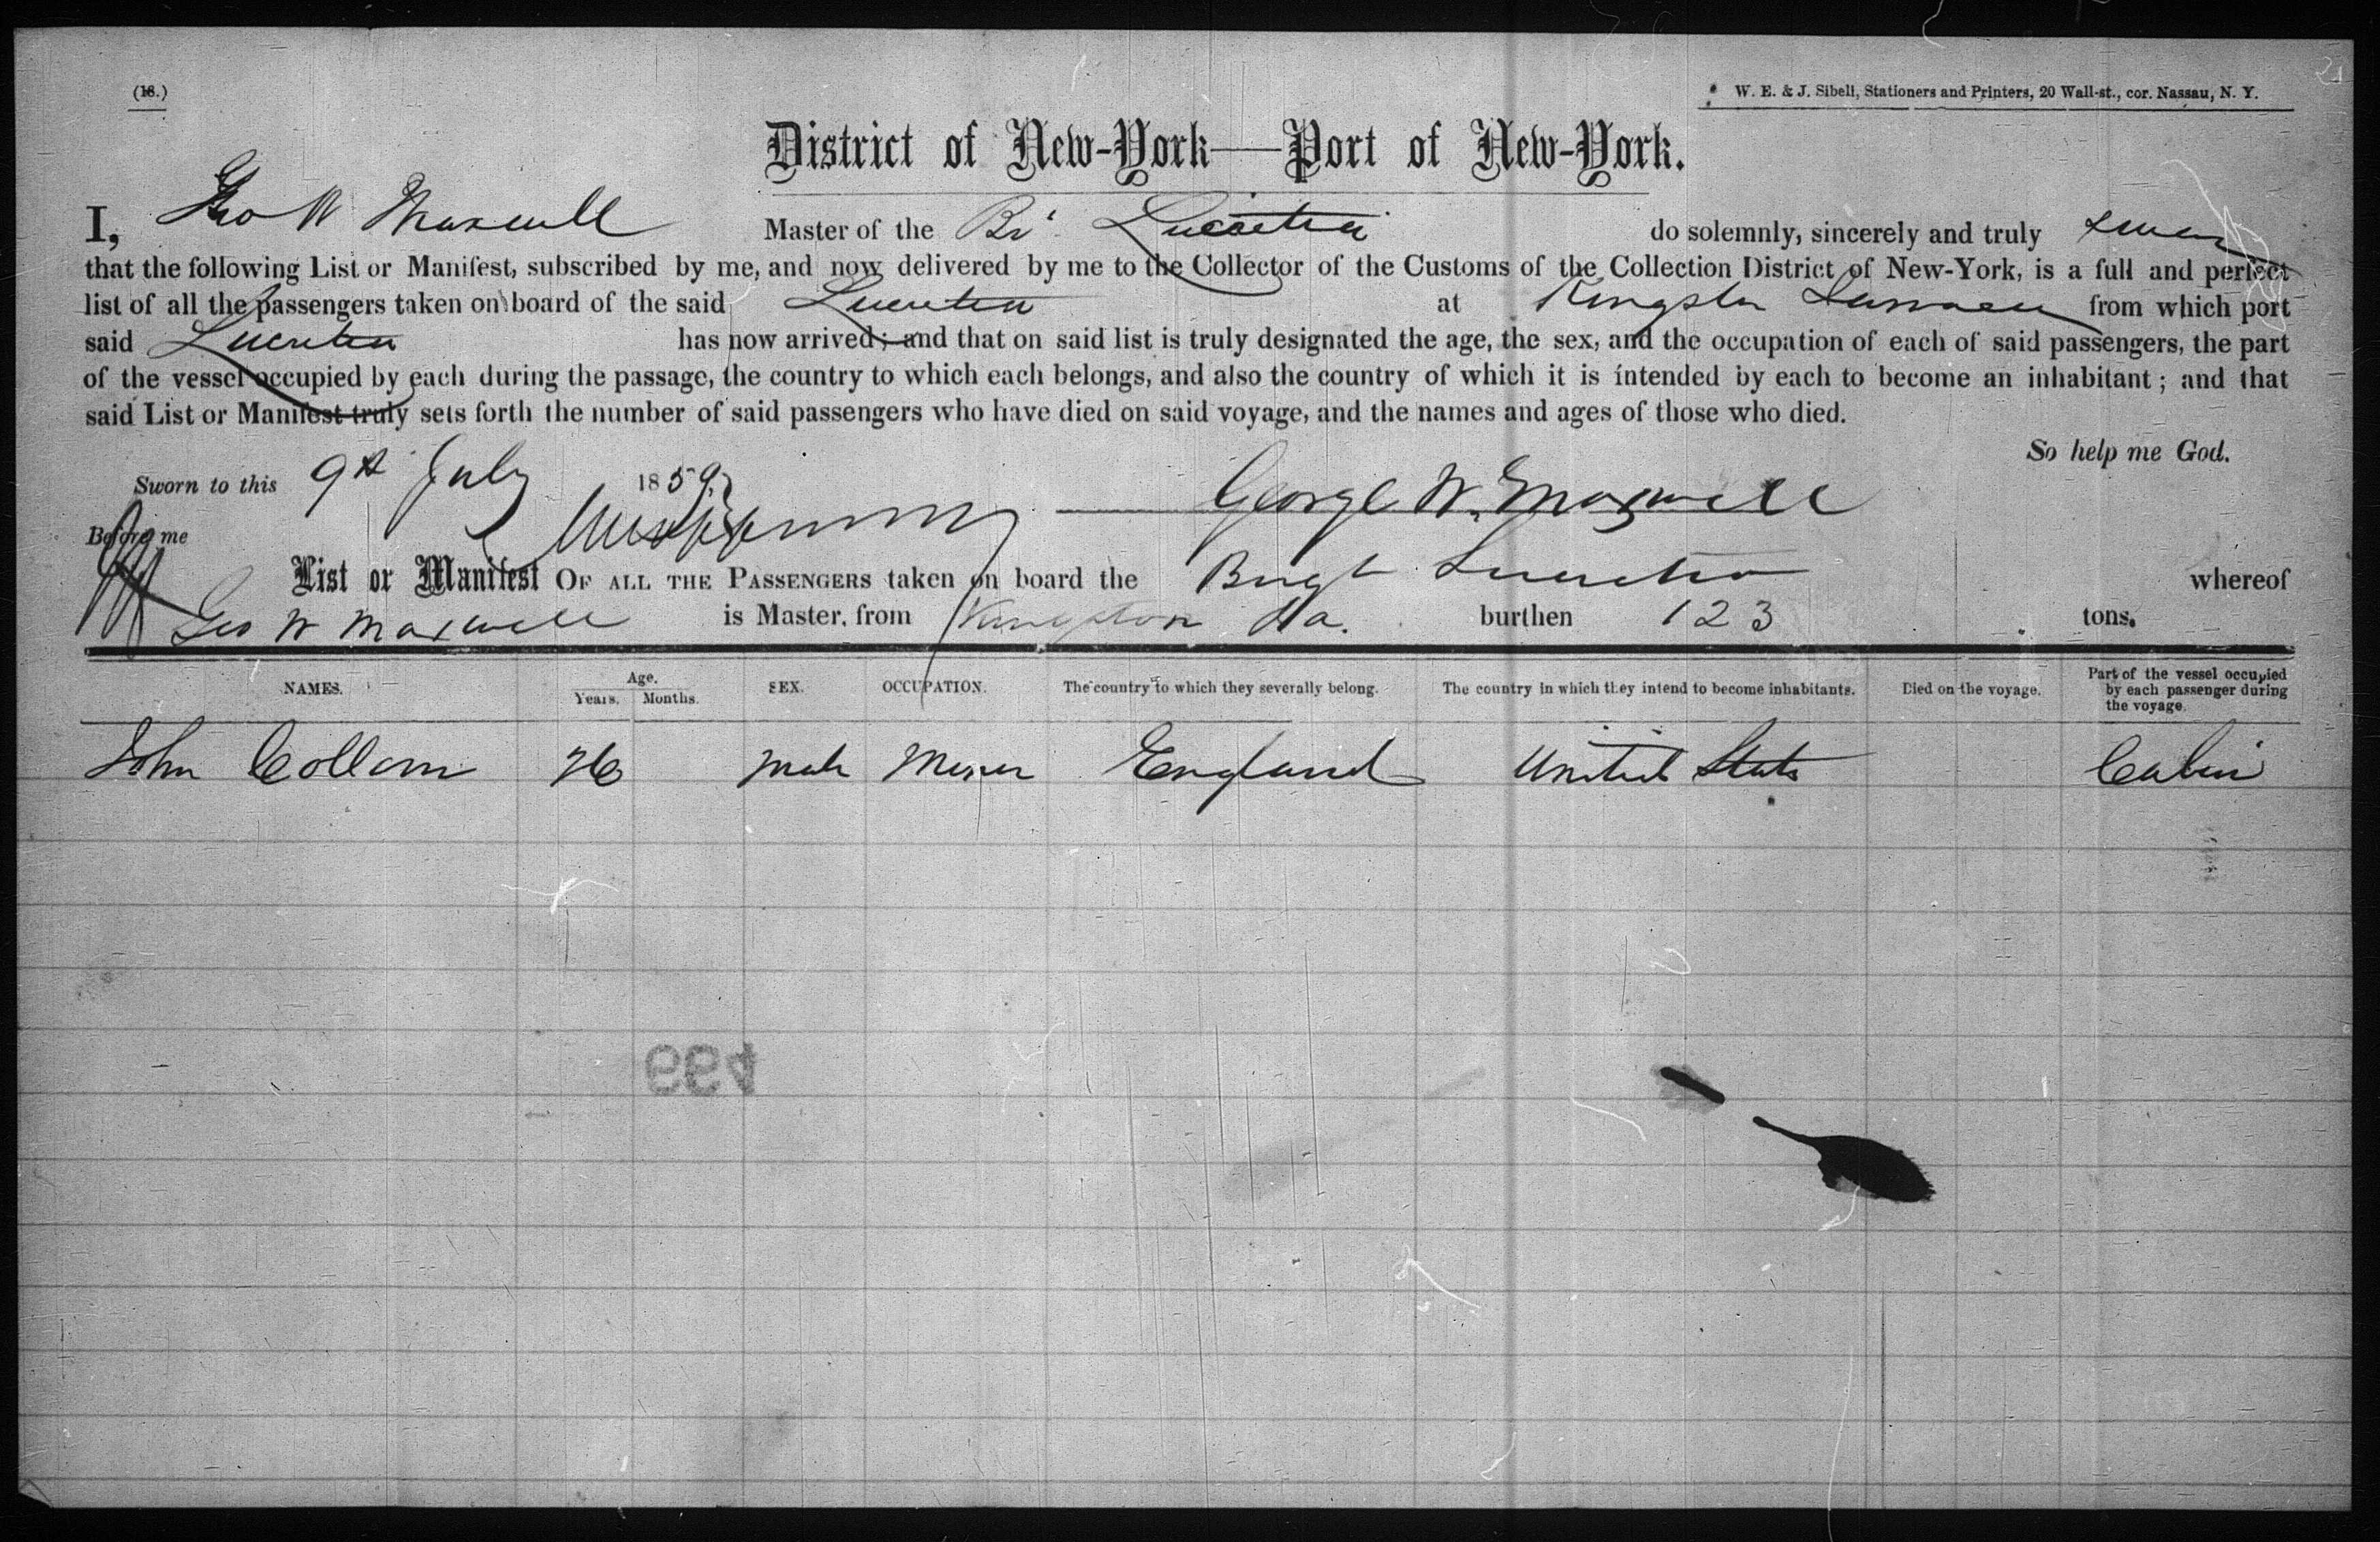 (18.)
W. E. & J. Sibell, Stationers and Printers, 20 Wall-st., cor. Nassau, N. Y.
District of New-York—Port of New-York.
I, Geo W Maxwell Master of the Br Lucretia do solemnly, sincerely and truly swear
that the following List or Manifest, subscribed by me, and now delivered by me to the Collector of the Customs of the Collection District of New-York, is a full and perfect
list of all the passengers taken on board of the said Lucretia at Kingston Jamaica from which port
said Lucretia has now arrived; and that on said list is truly designated the age, the sex, and the occupation of each of said passengers, the part
of the vessel occupied by each during the passage, the country to which each belongs, and also the country of which it is intended by each to become an inhabitant; and that
said List or Manifest truly sets forth the number of said passengers who have died on said voyage, and the names and ages of those who died.
So help me God.
Sworn to this 9th July 1859 George W. Maxwell
Before me
List or Manifest OF ALL THE PASSENGERS taken on board the Brigt Lucretia whereof
Geo W Maxwell is Master, from Kingston Ja. burthen 123 tons.
NAMES. Age. Years. Months. SEX. OCCUPATION. The country to which they severally belong. The country in which they intend to become inhabitants. Died on the voyage. Part of the vessel occupied by each passenger during the voyage.
John Collom 26 male Miner England United States Cabin
664